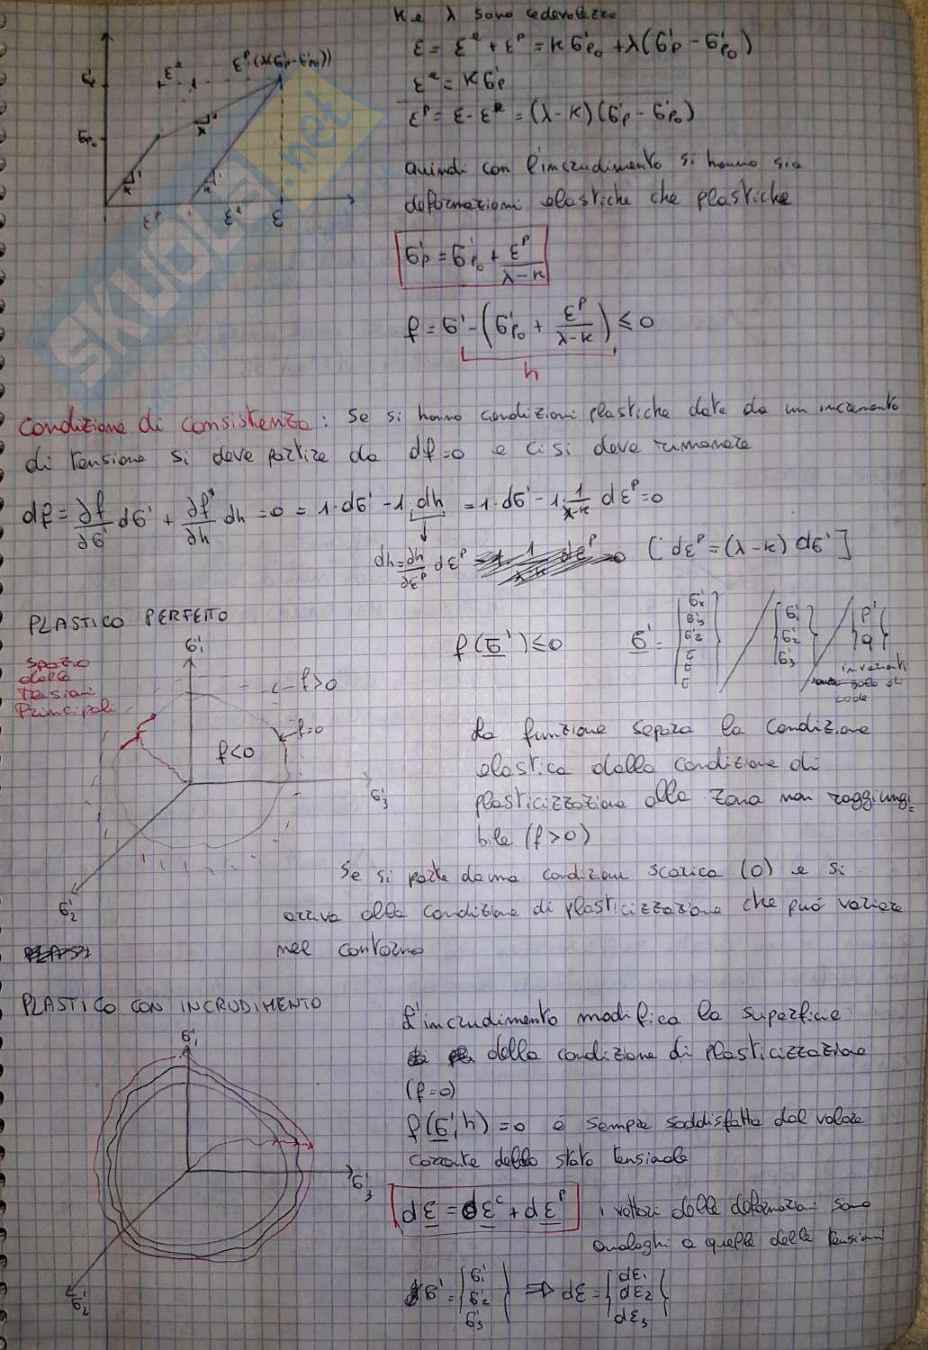 K e λ sono cedevolezze
ε = εᵉ + εᵖ = κ σ'p₀ + λ(σ'p - σ'p₀)
εᵉ = κ σ'p
εᵖ = ε - εᵉ = (λ-κ)(σ'p - σ'p₀)
quindi con l'incrudimento si hanno sia
deformazioni elastiche che plastiche
σ'p = σ'p₀ + εᵖ/(λ-κ)
f = σ' - (σ'p₀ + εᵖ/(λ-κ)) ≤ 0
h
Condizione di consistenza: se si hanno condizioni plastiche date da un incremento
di tensione si deve partire da df=0 e ci si deve rimanere
df = ∂f/∂σ' dσ' + ∂f/∂h dh = 0 = 1·dσ' - 1·dh = 1·dσ' - 1·1/(λ-κ) dεᵖ = 0
dh = ∂h/∂εᵖ dεᵖ [dεᵖ = (λ-κ) dσ']
PLASTICO PERFETTO
f(σ') ≤ 0 σ' =
spazio
delle
tensioni
principali
σ'₁
f>0
f=0
f<0
σ'₃
σ'₂
invarianti
La funzione separa la condizione
elastica dalla condizione di
plasticizzazione alla zona non raggiungi
bile (f>0)
Se si parte da una condizione scarica (0) e si
arriva alla condizione di plasticizzazione che può variare
nel contorno
PLASTICO CON INCRUDIMENTO
L'incrudimento modifica la superficie
della condizione di plasticizzazione
(f=0)
f(σ', h) = 0 è sempre soddisfatta dal valore
corrente dello stato tensionale
dε = dεᵉ + dεᵖ i vettori delle deformazioni sono
analoghi a quelle delle tensioni
σ' = {σ'₁ σ'₂ σ'₃} ⇒ dε = {dε₁ dε₂ dε₃}
σ'₁
σ'₃
σ'₂
SKUOLA.net